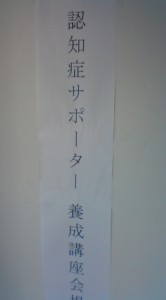 認知症サポーター養成講座会場